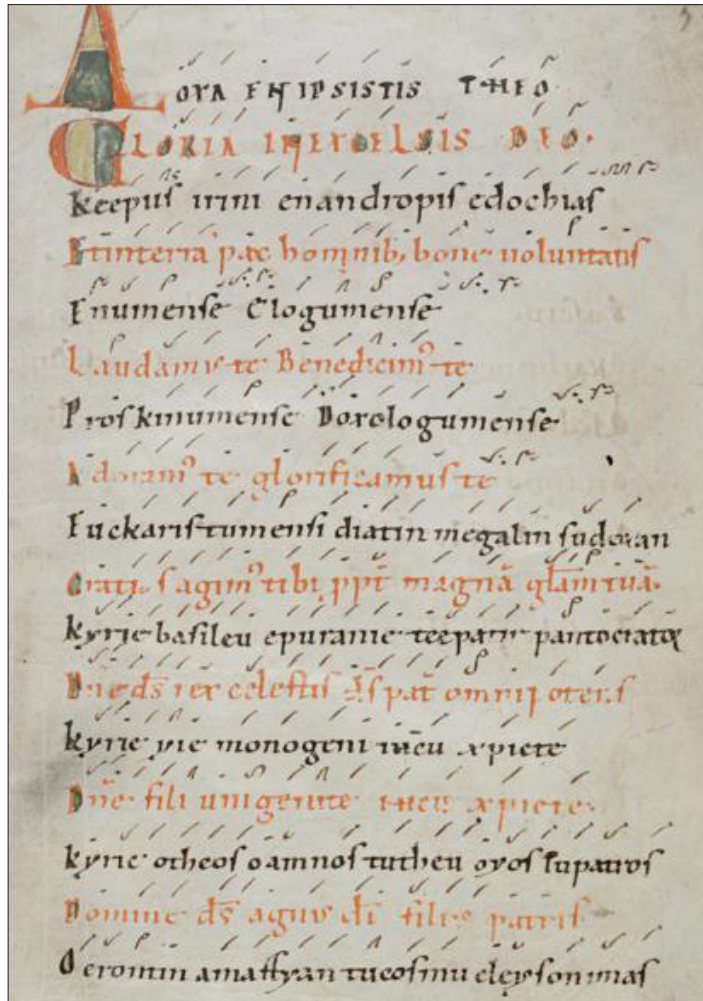 DOXA ENIPSISTIS THEO
GLORIA INEXCELSIS DEO.
Keepus irini enandropis edochias
Etinterra pax hominib; bone uoluntatis
Enumense Clogumense
Laudamus te Benedicim⁹ te
Proskinumense Doxologumense
Adoram⁹ te glorificamus te
Euckaristumensi diatin megalin sudoxan
Gratias agim⁹ tibi ppt̄ magnā gl̄am tuā.
kyrie basileu epuranie theepatir pantocrator
Dn̄e ds̄ rex celestis ds̄ pat̄ omnipotens
kyrie yie monogeni ihū xpiste
Dn̄e fili unigenite ihū xpiste.
kyrie otheos o amnos tutheu oyos tupatros
Domine ds̄ agnus dī filius patris
O eromin amartyan tucosmu eleyson imas